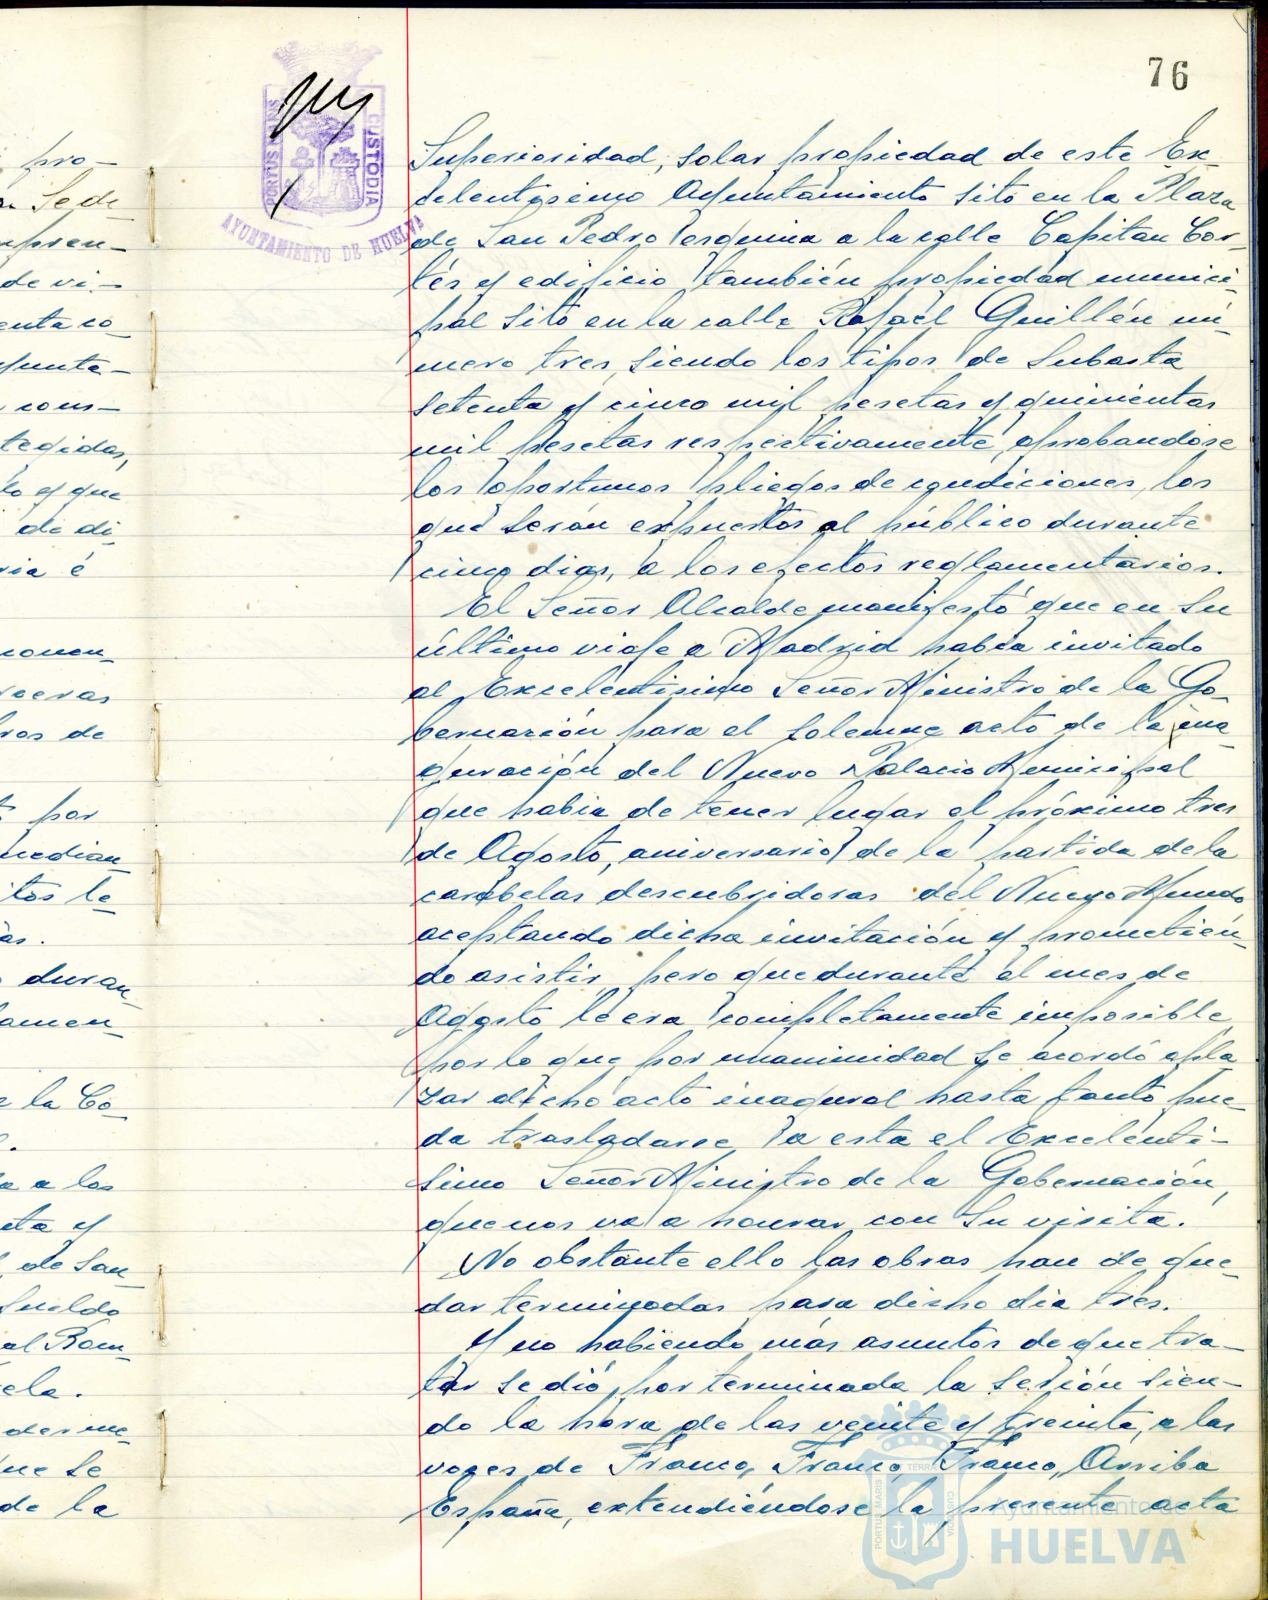 pro-
Sede-
npren-
de vi-
enta co-
yunta-
cons-
tegidas,
lo y que
de di-
ria é
ronen-
raeras
ros de
por
median-
itos le-
as.
duran-
lamen-
e la Co-
a a los
eta y
de San-
Sueldo
al Rom-
ela.
ue se
de la
PORTUS MARIS
CUSTODIA
AYUNTAMIENTO DE HUELVA
76
Superioridad, solar propiedad de este Ex-
celentísimo Ayuntamiento sito en la Plaza
de San Pedro esquina a la calle Capitan Cor-
tés y edificio también propiedad munici-
pal sito en la calle Rafaél Guillén nú-
mero tres, siendo los tipos de Subasta
setenta y cinco mil pesetas y quinientas
mil pesetas respectivamente, aprobandose
los oportunos pliegos de condiciones, los
que serán expuestos al público durante
cinco dias, a los efectos reglamentarios.
El Señor Alcalde manifestó que en su
último viaje a Madrid habia invitado
al Excelentisimo Señor Ministro de la Go-
bernación para el solemne acto de la ina-
guración del Nuevo Palacio Municipal
que habia de tener lugar el próximo tres
de Agosto, aniversario de la partida de la
carabelas descubridoras del Nuevo Mundo
aceptando dicha invitación y prometién-
do asistir, pero que durante el mes de
Agosto le era completamente imposible,
por lo que por unanimidad se acordó apla
zar dicho acto inagural hasta tanto pue-
da trasladarse a esta el Excelenti-
simo Señor Ministro de la Gobernación,
que nos va a honrar con su visita.
No obstante ello las obras han de que-
dar terminadas para dicho dia tres.
Y no habiendo más asuntos de que tra-
tar se dió por terminada la sesión sien-
do la hora de las veinte y treinta, a las
voces de Franco, Franco, Franco, Arriba
España, extendiéndose la presente acta
PORTUS MARIS
TERRAE
CUSTODIA
Ayuntamiento de
HUELVA